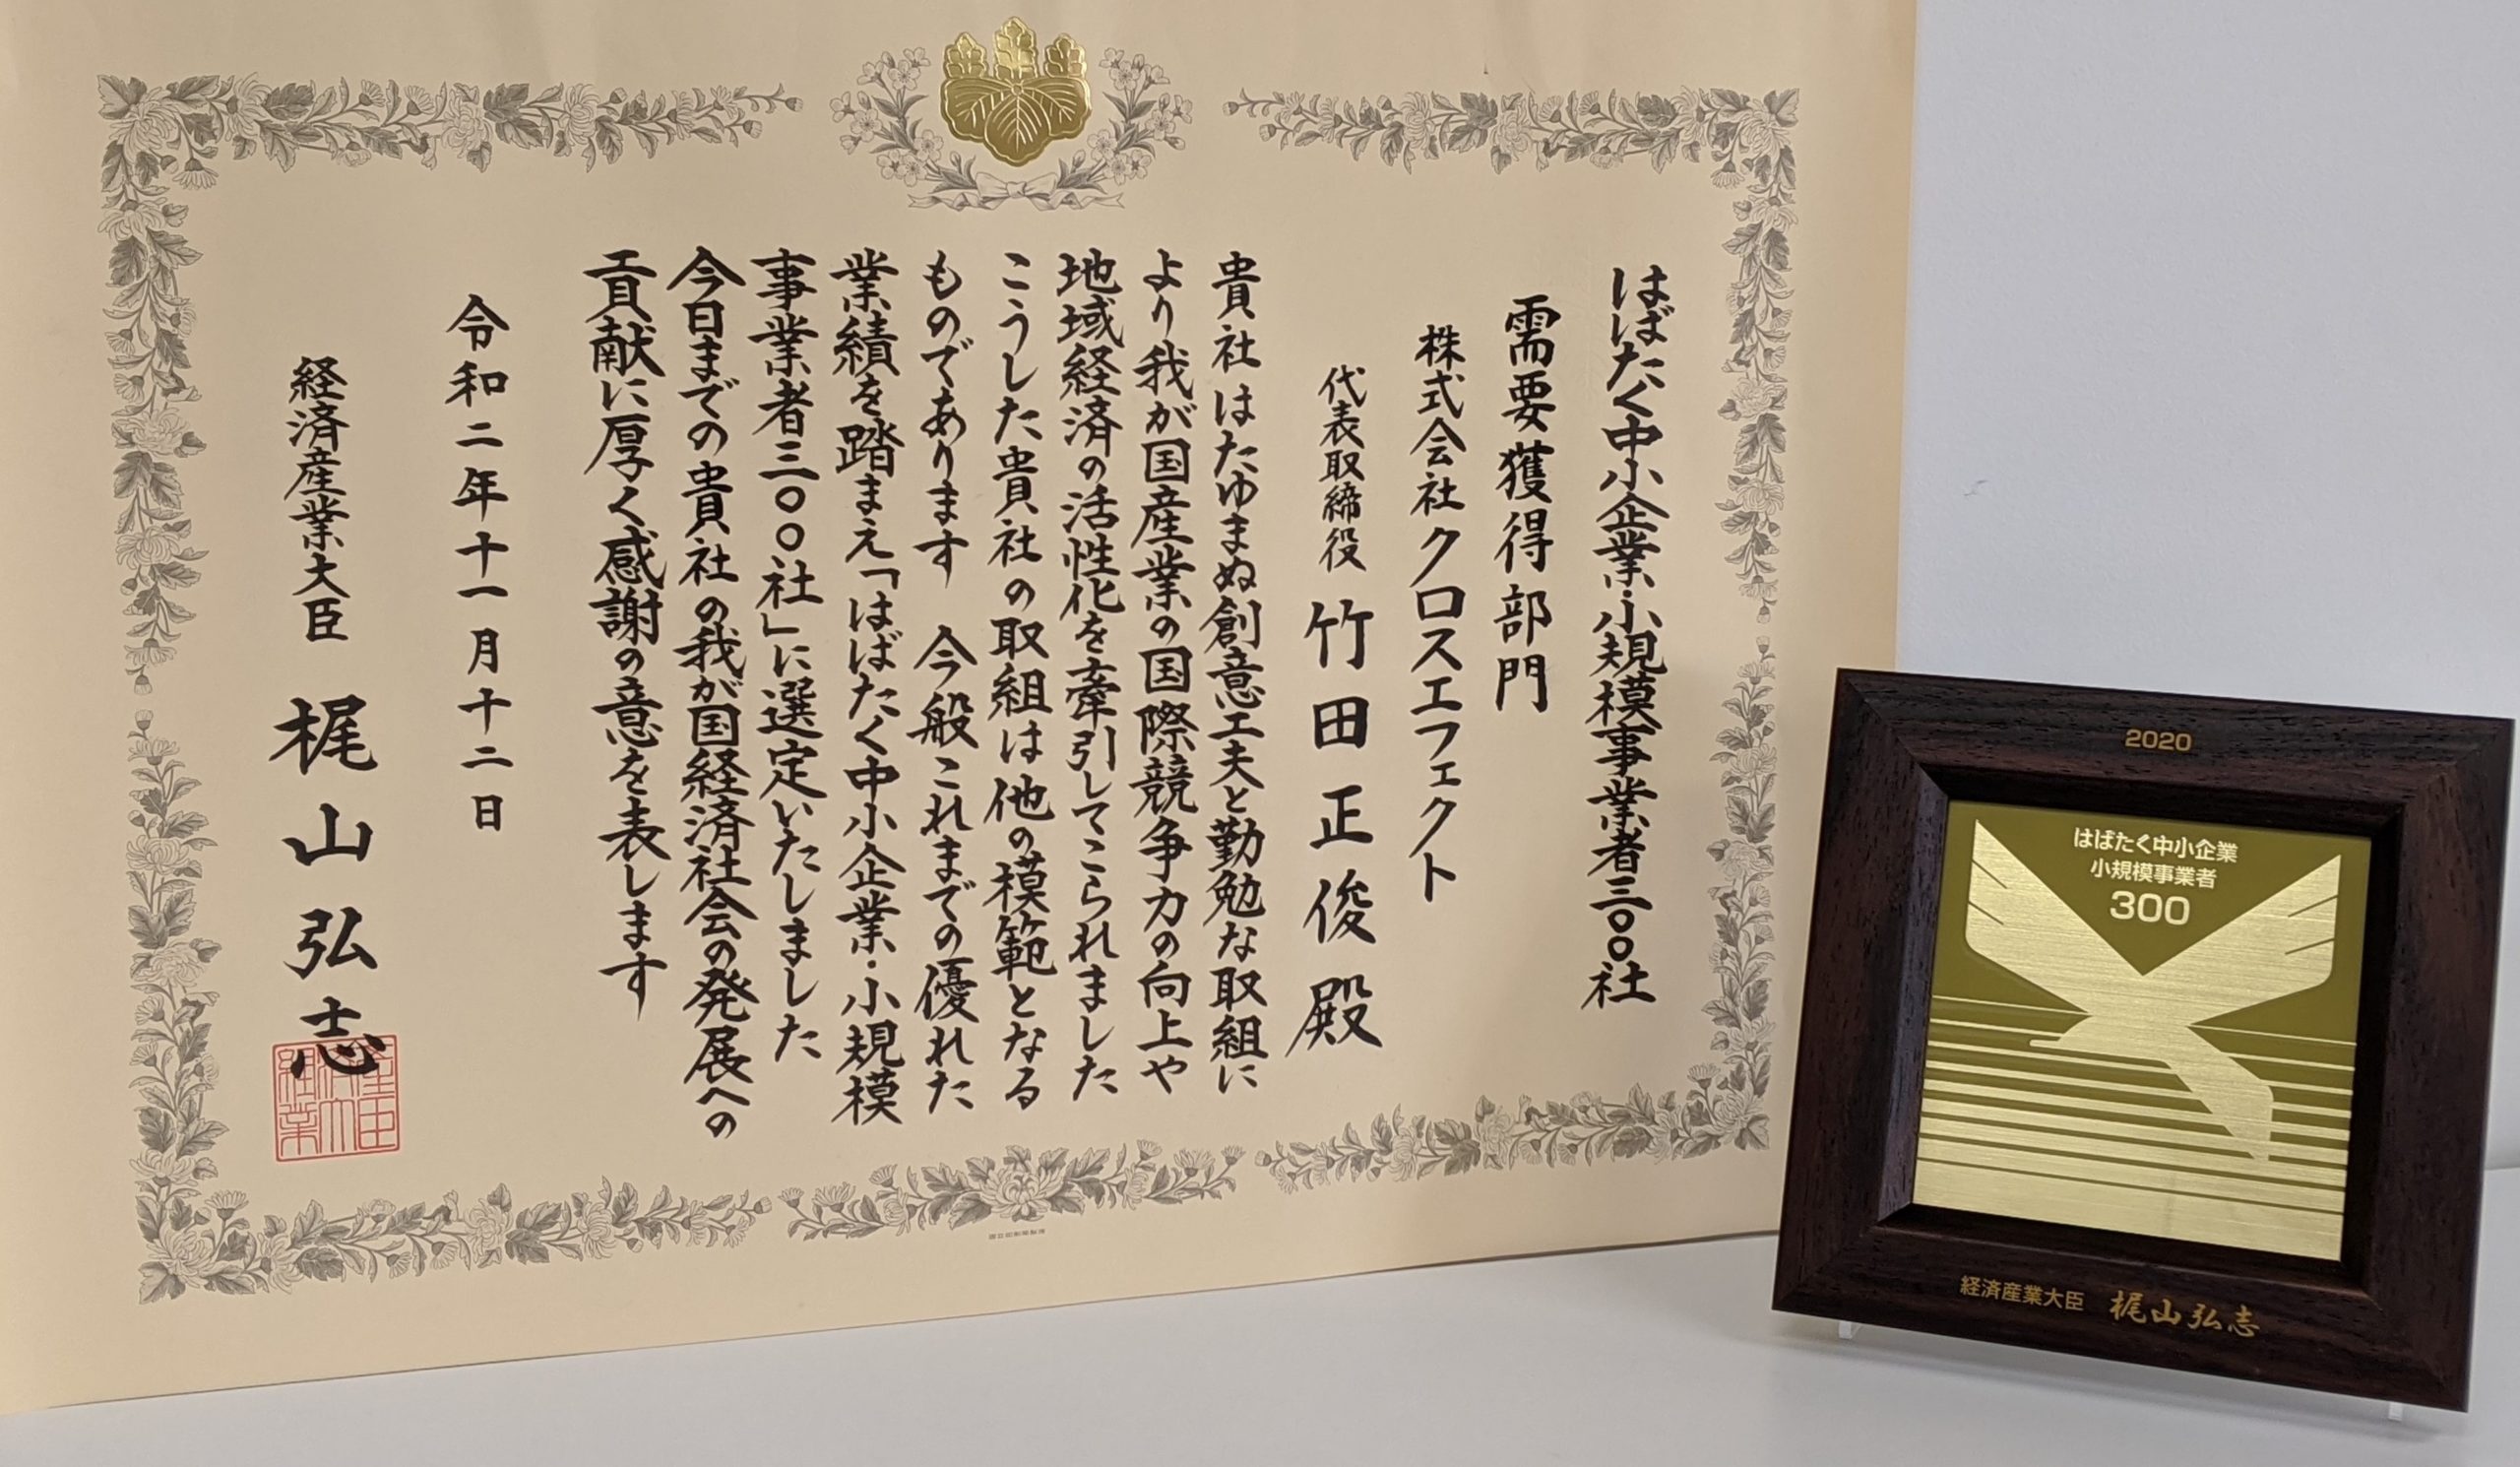 はばたく中小企業・小規模事業者三〇〇社
需要獲得部門
株式会社クロスエフェクト
代表取締役 竹田正俊殿
貴社はたゆまぬ創意工夫と勤勉な取組に
より我が国産業の国際競争力の向上や
地域経済の活性化を牽引してこられました
こうした貴社の取組は他の模範となる
ものであります 今般これまでの優れた
業績を踏まえ「はばたく中小企業・小規模
事業者三〇〇社」に選定いたしました
今日までの貴社の我が国経済社会の発展への
貢献に厚く感謝の意を表します
令和二年十一月十二日
経済産業大臣 梶山弘志
2020
はばたく中小企業
小規模事業者
300
経済産業大臣 梶山弘志